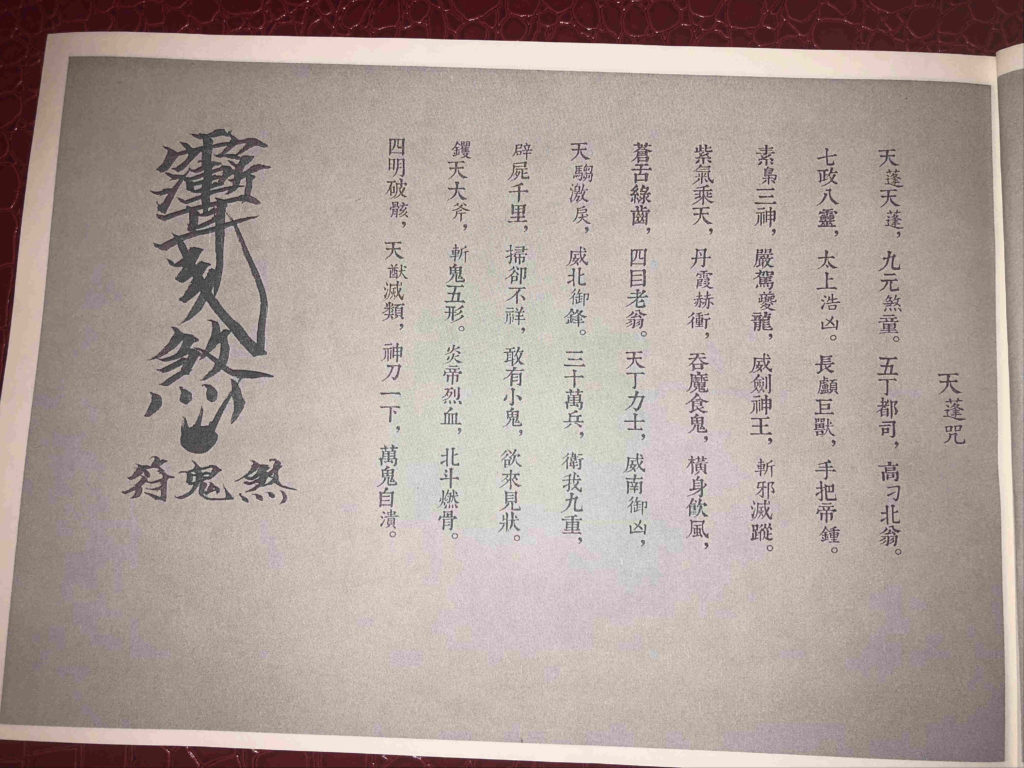 天蓬咒
天蓬天蓬，九元煞童。五丁都司，高刁北翁。
七政八靈，太上浩凶。長顱巨獸，手把帝鍾。
素梟三神，嚴駕夔龍，威劍神王，斬邪滅蹤。
紫氣乘天，丹霞赫衝，吞魔食鬼，橫身飲風，
蒼舌綠齒，四目老翁。天丁力士，威南御凶，
天騶激戾，威北御鋒。三十萬兵，衛我九重，
辟屍千里，掃卻不祥，敢有小鬼，欲來見狀。
钁天大斧，斬鬼五形。炎帝烈血，北斗燃骨。
四明破骸，天猷滅類，神刀一下，萬鬼自潰。
煞鬼符